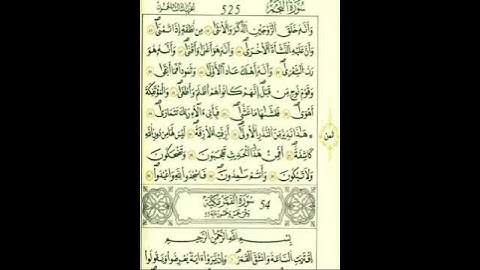 سُورَةُ النَّجْمِ 525
وَأَنَّهُ خَلَقَ الزَّوْجَيْنِ الذَّكَرَ وَالْأُنْثَىٰ مِنْ نُطْفَةٍ إِذَا تُمْنَىٰ
وَأَنَّ عَلَيْهِ النَّشْأَةَ الْأُخْرَىٰ وَأَنَّهُ هُوَ أَغْنَىٰ وَأَقْنَىٰ وَأَنَّهُ هُوَ
رَبُّ الشِّعْرَىٰ وَأَنَّهُ أَهْلَكَ عَادًا الْأُولَىٰ وَثَمُودَ فَمَا أَبْقَىٰ
وَقَوْمَ نُوحٍ مِنْ قَبْلُ إِنَّهُمْ كَانُوا هُمْ أَظْلَمَ وَأَطْغَىٰ وَالْمُؤْتَفِكَةَ
أَهْوَىٰ فَغَشَّٰهَا مَا غَشَّىٰ فَبِأَيِّ آلَاءِ رَبِّكَ تَتَمَارَىٰ
هَٰذَا نَذِيرٌ مِنَ النُّذُرِ الْأُولَىٰ أَزِفَتِ الْآزِفَةُ لَيْسَ لَهَا مِنْ دُونِ اللَّهِ
كَاشِفَةٌ أَفَمِنْ هَٰذَا الْحَدِيثِ تَعْجَبُونَ وَتَضْحَكُونَ
وَلَا تَبْكُونَ وَأَنْتُمْ سَامِدُونَ فَاسْجُدُوا لِلَّهِ وَاعْبُدُوا
54 سُورَةُ الْقَمَرِ مَكِّيَّةٌ
بِسْمِ اللَّهِ الرَّحْمَٰنِ الرَّحِيمِ
اقْتَرَبَتِ السَّاعَةُ وَانْشَقَّ الْقَمَرُ وَإِنْ يَرَوْا آيَةً يُعْرِضُوا وَيَقُولُوا